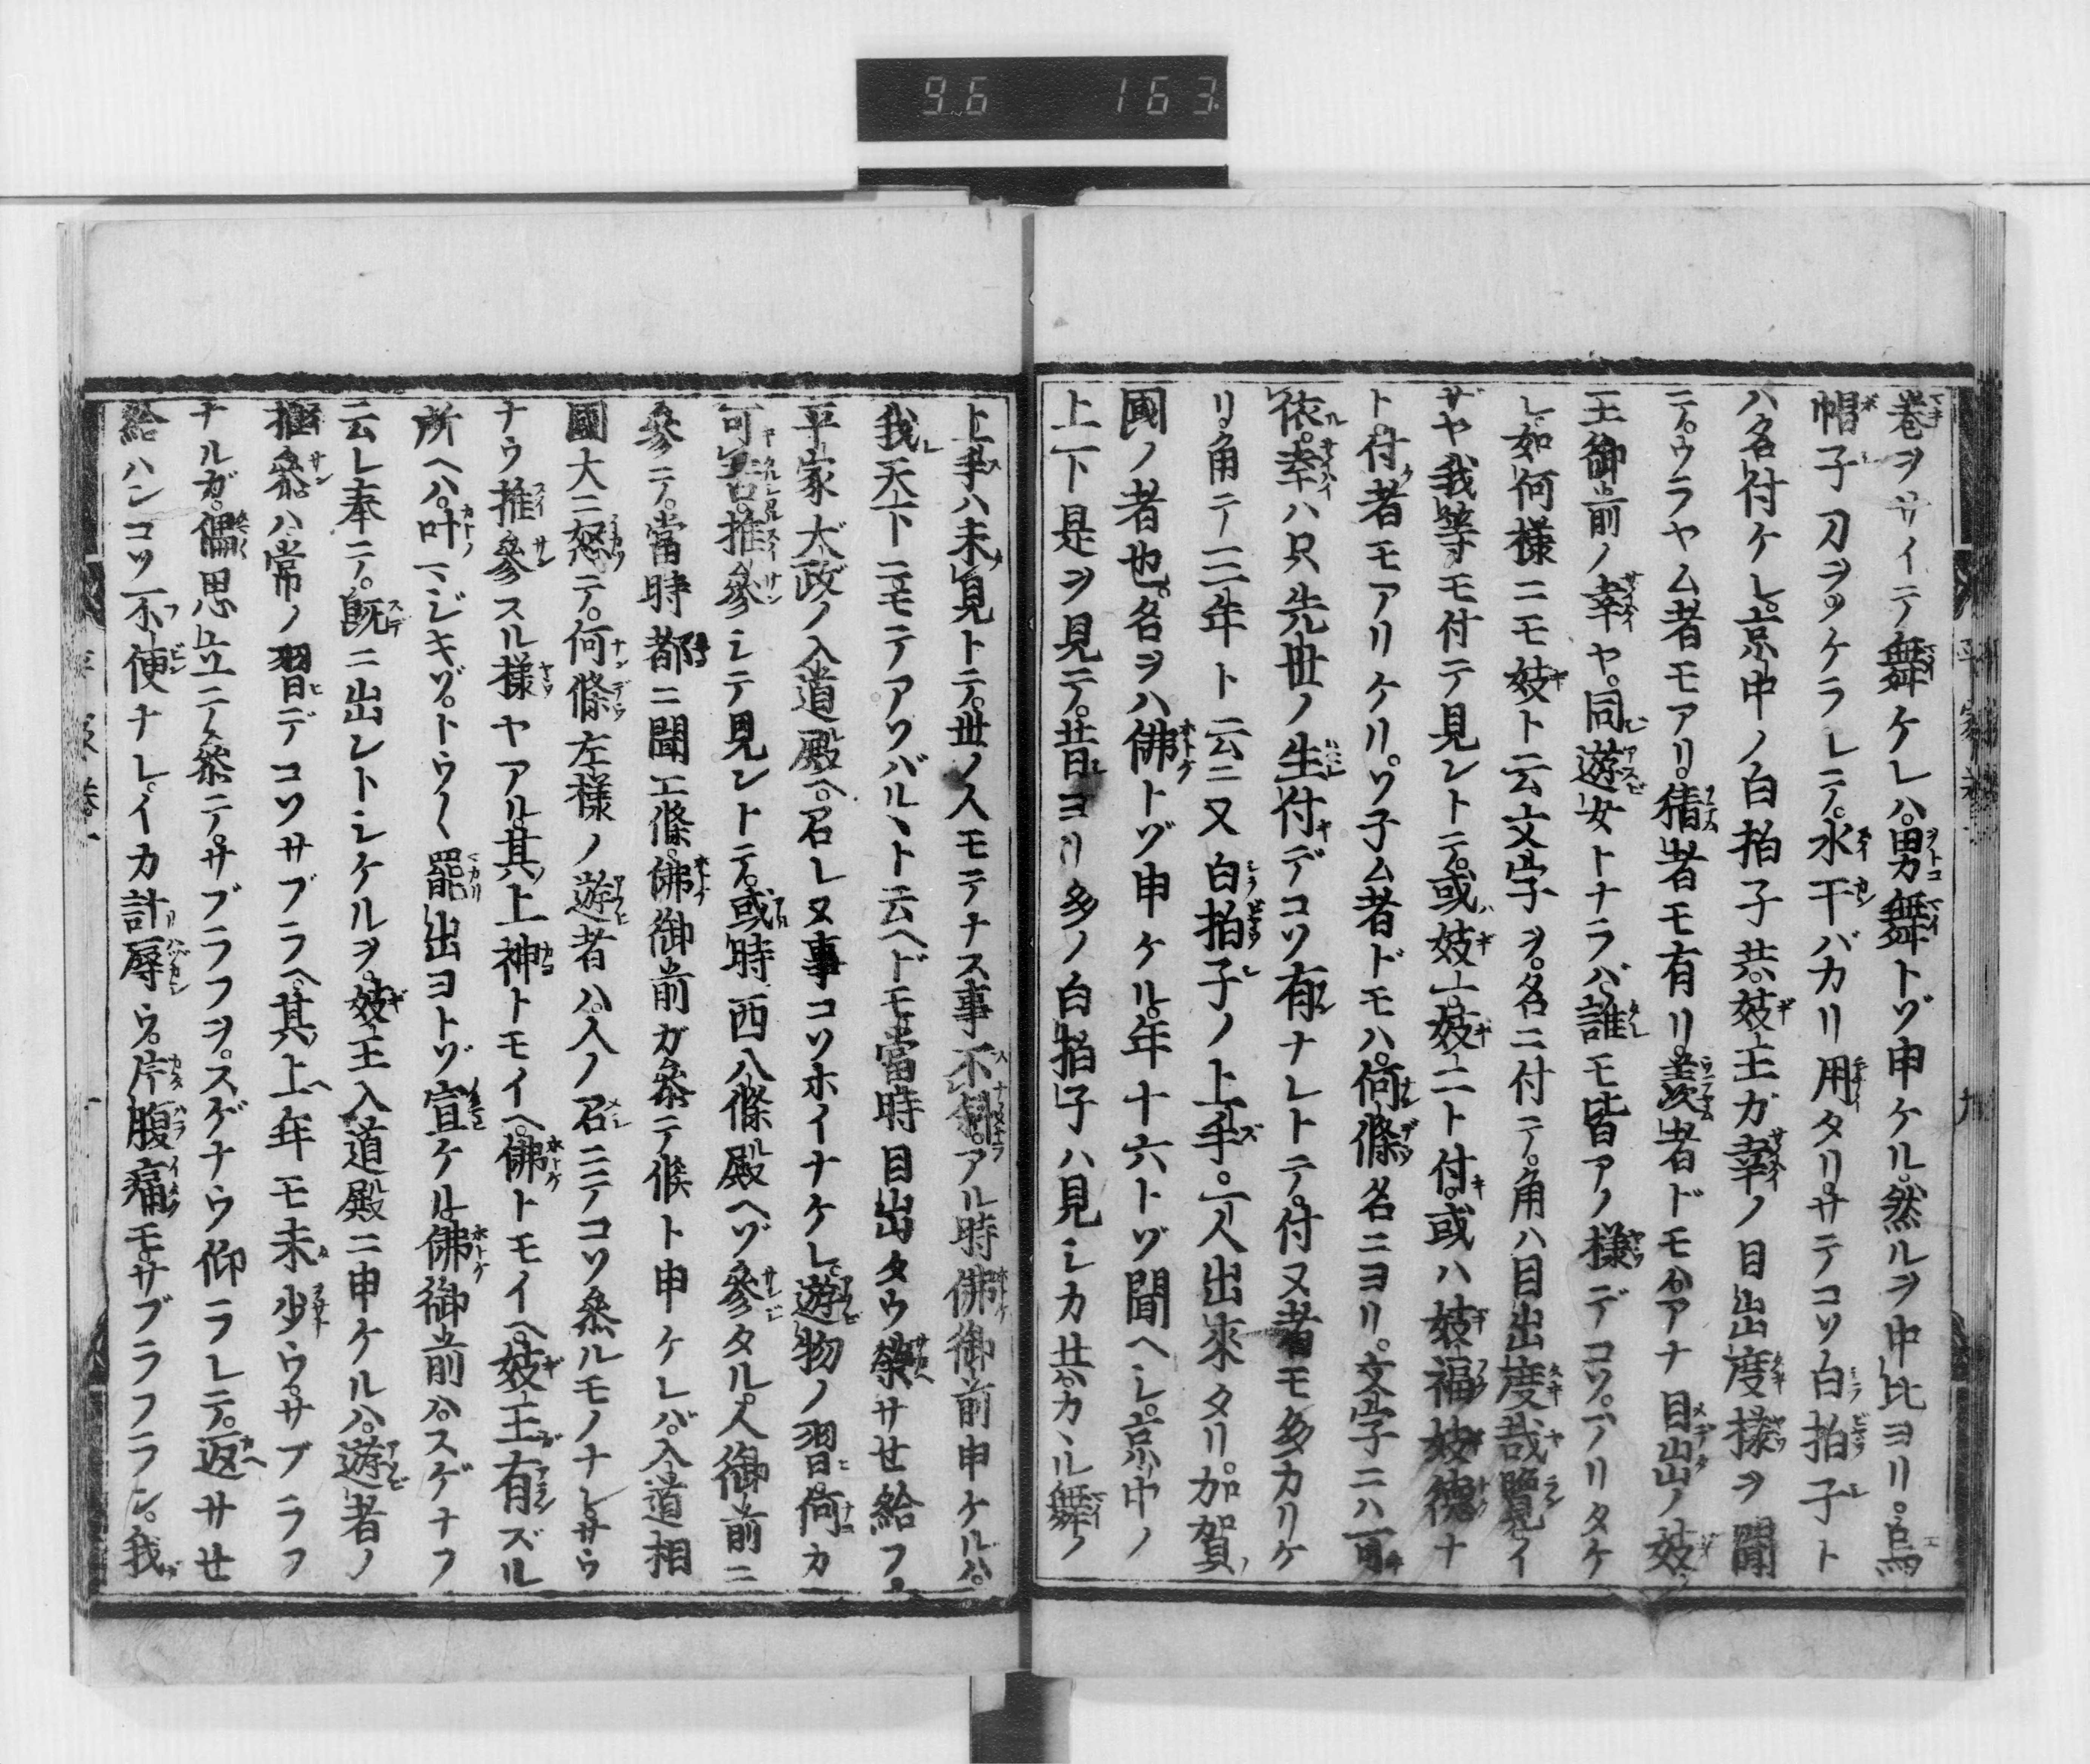 96 163
巻ヲサイテ舞ケレハ。男舞トゾ申ケル。然ルヲ中比ヨリ。烏
帽子刀ヲノケラレテ。水干バカリ用タリ。サテコソ白拍子ト
ハ名付ケレ。京中ノ白拍子共。妓王ガ幸ノ目出度様ヲ聞
テ。ウラヤム者モアリ。猜者モ有リ。羨者ドモハ。アナ目出ノ妓
王御前ノ幸ヤ。同遊女トナラバ。誰モ皆アノ様デコソ。アリタケ
レ。如何様ニモ妓ト云文字ヲ。名ニ付テ。角ハ目出度哉覧。イ
ザヤ我等モ付テ見ントテ。或妓一。妓二ト付。或ハ妓福妓徳ナ
ト。付者モアリケリ。ソ子ム者ドモハ。何條名ニヨリ。文字ニハ可
依。幸ハ只先世ノ生付デコソ有ナレトテ。付ヌ者モ多カリケ
リ。角テ三年ト云ニ又白拍子ノ上手。一人出來タリ。加賀
國ノ者也。名ヲハ佛トゾ申ケル。年十六トゾ聞ヘシ。京中ノ
上下是ヲ見テ。昔ヨリ多ノ白拍子ハ見シカ共。カヽル舞ノ
上手ハ未見トテ。世ノ人モテナス事不斜。アル時佛御前申ケルハ。
我天下ニモテアソバルヽト云ヘドモ當時目出タウ榮サせ給フ
平家太政ノ入道殿ヘ。召レヌ事コソホイナケレ。遊物ノ習。何カ
可苦。推參シテ見ントテ。或時西八條殿ヘゾ參タル。人御前ニ
參テ。當時都ニ聞エ候。佛御前ガ參テ候ト申ケレバ。入道相
國大ニ怒テ。何條左樣ノ遊者ハ。人ノ召ニテコソ參ルモノナレ。サウ
ナウ推參スル樣ヤアル。其上神トモイヘ。佛トモイヘ。妓王有ズル
所ヘハ。叶マジキゾ。トウ〱罷出ヨトゾ宣ケル。佛御前ハ。スゲナフ
云レ奉テ。既ニ出ントシケルヲ。妓王入道殿ニ申ケルハ。遊者ノ
推參ハ。常ノ習デコソサブラヘ。其上年モ未少ウ。サブラフ
ナルガ。偶思立テ參テ。サブラフヲ。スゲナウ仰ラレテ。返サせ
給ハンコソ不便ナレ。イカ計辱ウ。片腹痛モ。サブラフラン。我